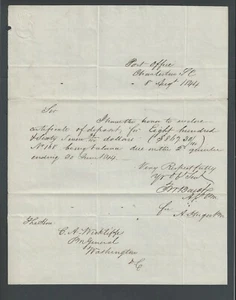 Post Office
Charleston S.C.
5 Sept 1844
Sir
I have the honor to enclose
certificate of deposit, for Eight hundred
& Sixty seven dollars
No 145 being balance due with 2d quarter
ending 30 June 1844.
Very Respectfully
Yr Ob Svt
for A. Huger PM
Hon
C. A. Wickliffe
PM General
Washington
D C